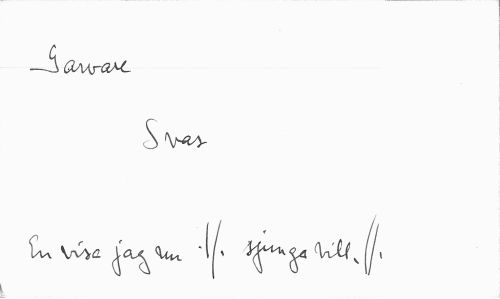 Garvare
Svar
En visa jag nu :||: sjunga vill. :||: